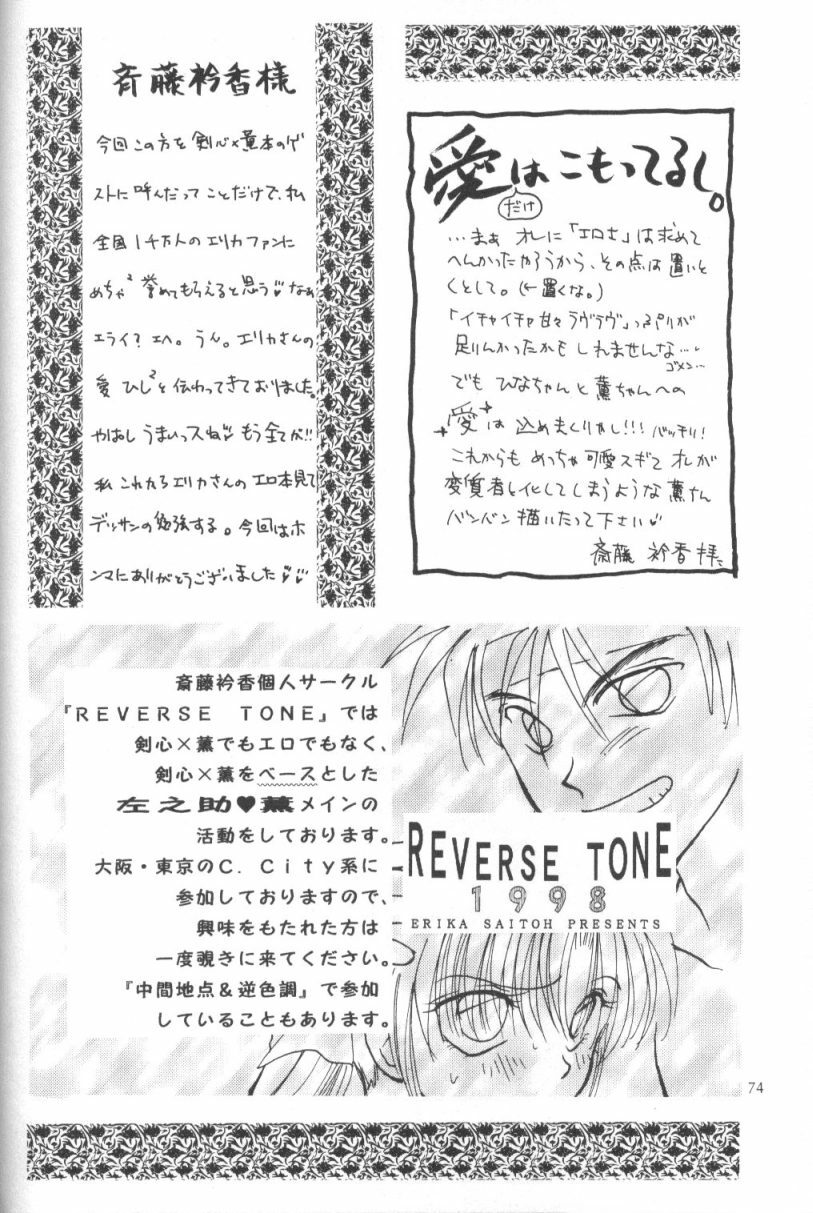 斉藤衿香様
今回この方を剣心×薫本のゲ
ストに呼んだってことだけで、私
全国1千万人のエリカファンに
めちゃ²誉めてもらえると思う♡なぁ
エライ?エヘ。うん。エリカさんの
愛ひし²と伝わってきておりました。
やはしうまいっスね♡もう全てが!!
私これからエリカさんのエロ本見て
デッサンの勉強する。今回はホ
ンマにありがとうございました♡♡
愛はこもってるし。
だけ
…まぁオレに「エロさ」は求めて
へんかったやろうから、その点は置いと
くとして。(←置くな。)
「イチャイチャ甘々ラヴラヴ」っぷりが
足りんかったかもしれませんな…
ゴメン…
でもひなちゃんと薫ちゃんへの
愛は込めまくりやし!!!バッチリ!
これからもめっちゃ可愛スギてオレが
変質者と化してしまうような薫さん
バンバン描いたって下さい♡
斎藤衿香拝
斎藤衿香個人サークル
『REVERSE TONE』では
剣心×薫でもエロでもなく、
剣心×薫をベースとした
左之助♥薫メインの
活動をしております。
大阪・東京のC.City系に
参加しておりますので、
興味をもたれた方は
一度覗きに来てください。
『中間地点&逆色調』で参加
していることもあります。
REVERSE TONE
1998
ERIKA SAITOH PRESENTS
74